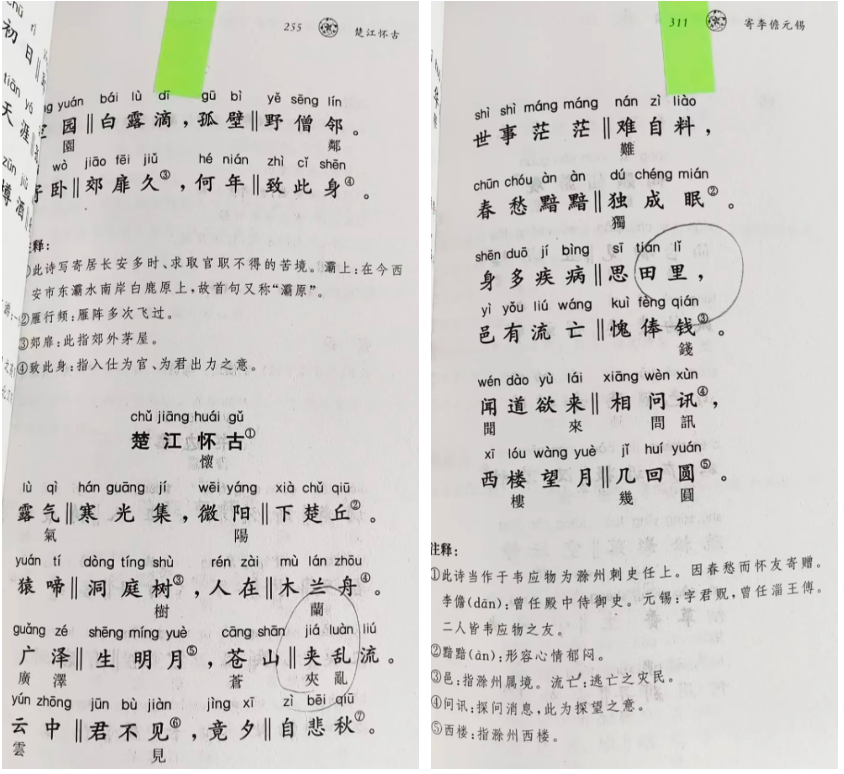 初日
tiān yá
天涯
樽酒
255 楚江怀古
yuán bái lù dī gū bì yě sēng lín
园‖白露滴，孤壁‖野僧邻。
園 鄰
wò jiāo fēi jiǔ hé nián zhì cǐ shēn
卧‖郊扉久③，何年‖致此身④。
注释：
①此诗写寄居长安多时、求取官职不得的苦境。灞上：在今西
安市东灞水南岸白鹿原上，故首句又称“灞原”。
②雁行频：雁阵多次飞过。
③郊扉：此指郊外茅屋。
④致此身：指入仕为官、为君出力之意。
chǔ jiāng huái gǔ
楚江怀古①
懷
lù qì hán guāng jí wēi yáng xià chǔ qiū
露气‖寒光集，微阳‖下楚丘②。
氣 陽
yuán tí dòng tíng shù rén zài mù lán zhōu
猿啼‖洞庭树③，人在‖木兰舟④。
樹 蘭
guǎng zé shēng míng yuè cāng shān jiá luàn liú
广泽‖生明月⑤，苍山‖夹乱流。
廣澤 蒼 夾亂
yún zhōng jūn bù jiàn jìng xī zì bēi qiū
云中‖君不见⑥，竟夕‖自悲秋⑦。
雲 見
311 寄李儋元锡
shì shì máng máng nán zì liào
世事茫茫‖难自料，
難
chūn chóu àn àn dú chéng mián
春愁黯黯‖独成眠②。
獨
shēn duō jí bìng sī tián lǐ
身多疾病‖思田里，
yì yǒu liú wáng kuì fèng qián
邑有流亡‖愧俸钱③。
錢
wén dào yù lái xiāng wèn xùn
闻道欲来‖相问讯④，
聞 來 問訊
xī lóu wàng yuè jǐ huí yuán
西楼望月‖几回圆⑤。
樓 幾 圓
注释：
①此诗当作于韦应物为滁州刺史任上。因春愁而怀友寄赠。
李儋(dān)：曾任殿中侍御史。元锡：字君贶，曾任淄王傅。
二人皆韦应物之友。
②黯黯(àn)：形容心情郁闷。
③邑：指滁州属境。流亡：逃亡之灾民。
④问讯：探问消息，此为探望之意。
⑤西楼：指滁州西楼。